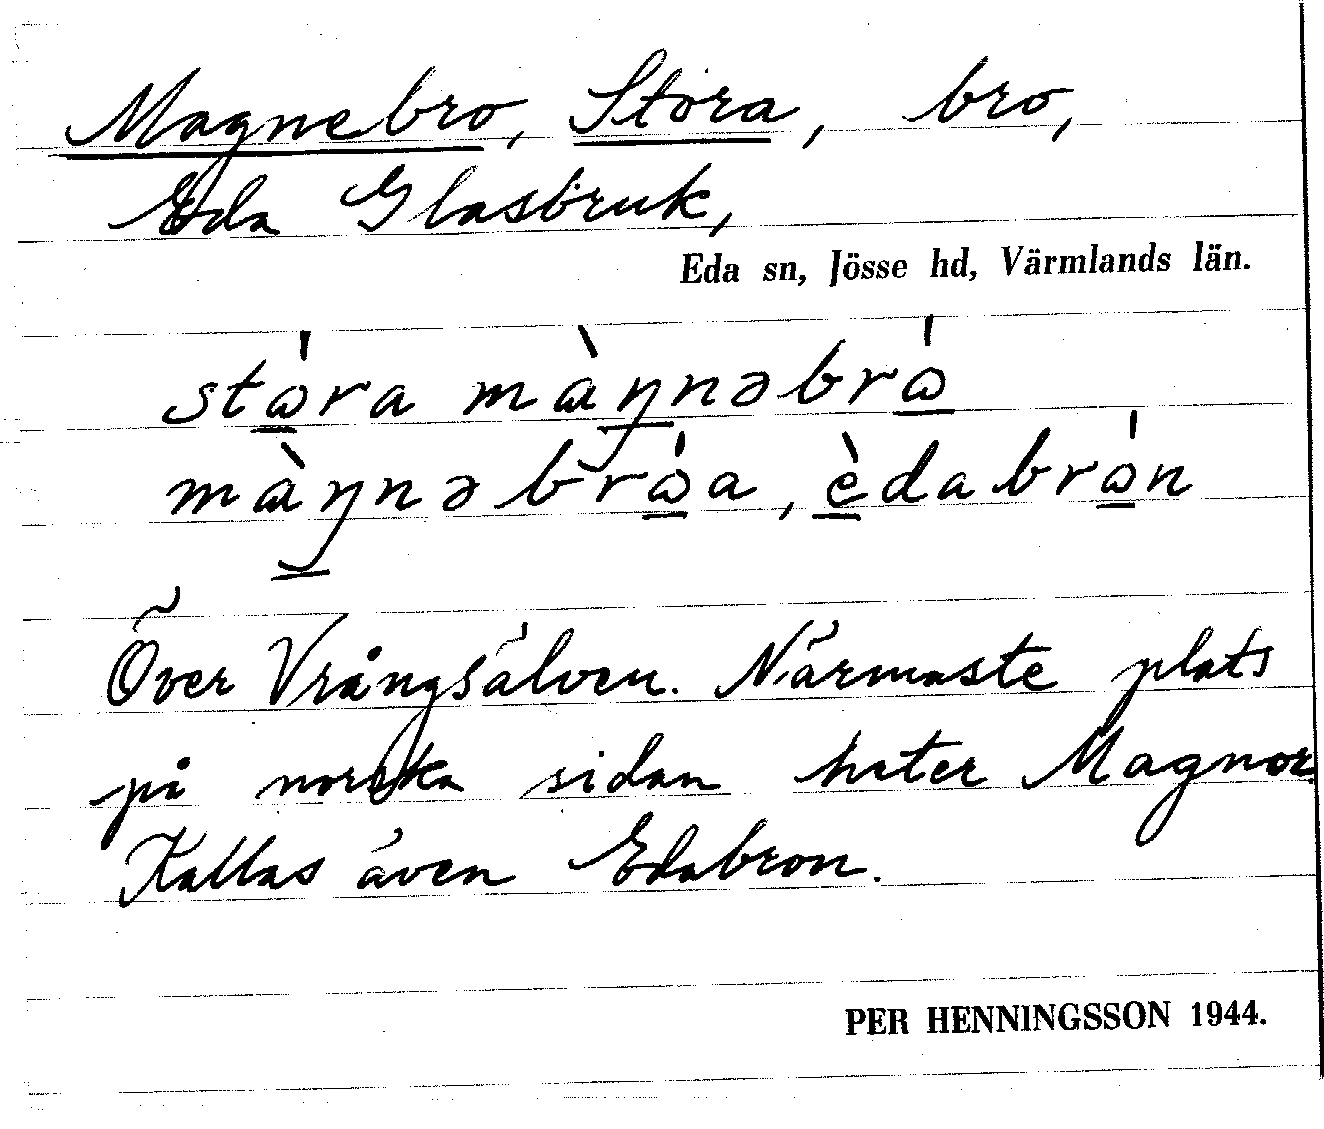 Magnebro, Stora, bro,
Eda Glasbruk,
Eda sn, Jösse hd, Värmlands län.
stɷ́ra màŋnəbrɷ́
màŋnəbrɷ́a, èdabrɷ́n
Över Vrångsälven. Närmaste plats
på norska sidan heter Magnor.
Kallas även Edabron.
PER HENNINGSSON 1944.